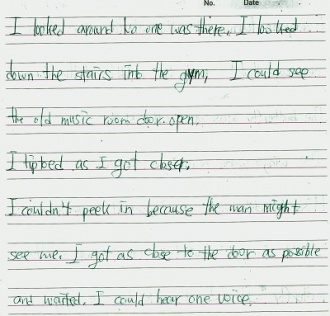 No. Date
I looked around no one was there. I looked
down the stairs into the gym, I could see
the old music room door open.
I tipped as I got closer.
I couldn't peek in because the man might
see me. I got as close to the door as possible
and waited. I could hear one voice.